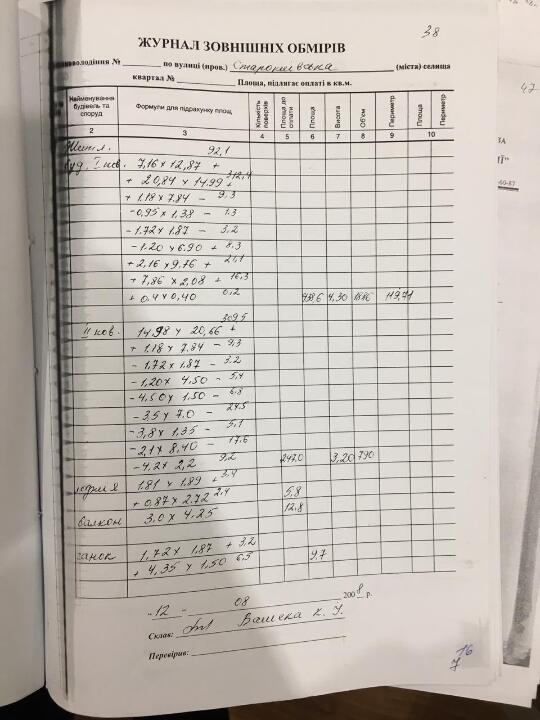 38
ЖУРНАЛ ЗОВНІШНІХ ОБМІРІВ
володіння № ______ по вулиці (пров.) Старокиївська (міста) селища
квартал № ______ Площа, підлягає оплаті в кв.м.
Найменування будівель та споруд Формули для підрахунку площ Кількість поверхів Площа до оплати Площа Висота Об'єм Периметр Площа Периметр
2 3 4 5 6 7 8 9 10
Житл. 92,1
буд. І пов. 7,16 x 12,87 +
+ 20,84 x 14.99 + 312,4
+ 1.18 x 7.84 - 9,3
- 0,95 x 1,38 - 1.3
- 1.72 x 1.87 - 3,2
- 1.20 x 6.90 + 8,3
+ 2,16 x 9.76 + 21,1
+ 7,86 x 2,08 + 16,3
+ 0.4 x 0,40 0,2 438,6 4,30 1886 119,71
309,5
ІІ пов. 14.98 x 20,66 +
+ 1.18 x 7.84 - 9,3
- 1,72 x 1,87 - 3.2
- 1,20 x 4,50 - 5,4
- 4,50 x 1,50 - 6.8
- 3,5 x 7.0 - 24.5
- 3,8 x 1,35 - 5,1
- 2,1 x 8,40 - 17.6
- 4,2 x 2,2 9,2 247.0 3,20 790
1,81 x 1,89 + 3,4
+ 0,87 x 2.72 2,4 5,8
балкон 3,0 x 4.25 12.8
ганок 1,72 x 1,87 + 3,2
+ 4,35 x 1,50 6,5 9,7
"12" 08 2008 р.
Склав: Вашека К. У.
Перевірив:
16
47